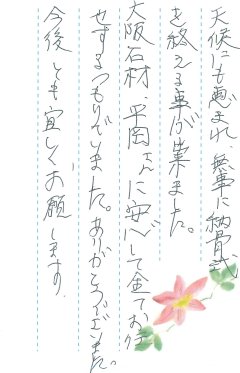 天候にも恵まれ、無事に納骨式
を終える事が出来ました。
大阪石材 平岡さんに安心して全てお任
せするつもりでいました。ありがとうございました。
今後とも宜しくお願いします。